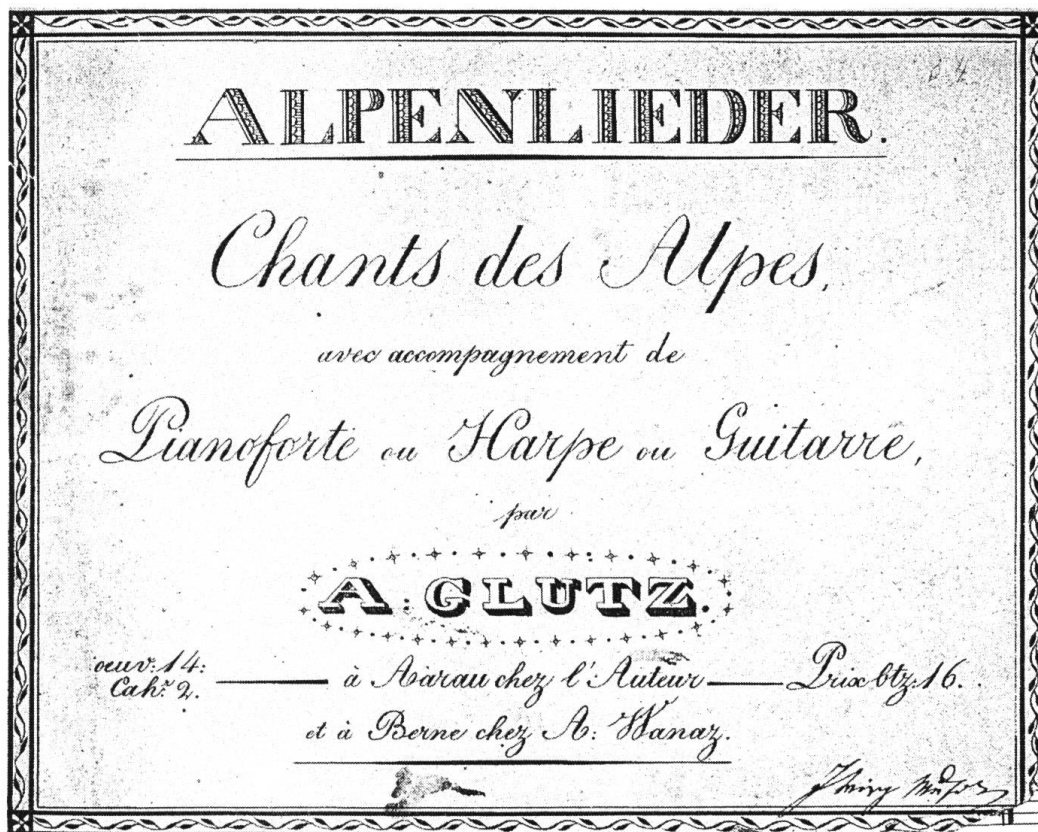 ALPENLIEDER.
Chants des Alpes,
avec accompagnement de
Pianoforte ou Harpe ou Guitarre,
par
A. GLUTZ.
oeuv: 14: à Aarau chez l'Auteur Prix btz. 16.
Cahr. 2.
et à Berne chez A: Wanaz.